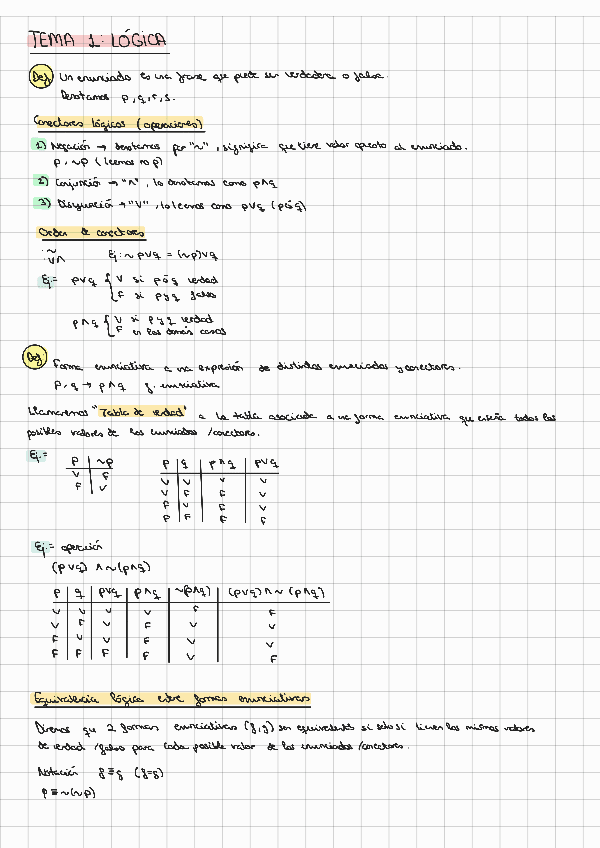 TEMA 1: LÓGICA
Def Un enunciado es una frase que puede ser verdadera o falsa.
Denotamos p, q, r, s.
Conectores lógicos (operaciones)
1) Negación → denotamos por "~", significa que tiene valor opuesto al enunciado.
p, ~p (leemos no p)
2) Conjunción → "∧", lo denotamos como p∧q
3) Disyunción → "∨", lo leemos como p∨q (p ó q)
Orden de conectores
~ Ej: ~p∨q = (~p)∨q
∨∧
Ej.= p∨q { V si p ó q verdad
F si p y q falso
p∧q { V si p y q verdad
F en los demás casos
Def Forma enunciativa a una expresión de distintos enunciados y conectores.
p, q → p∧q f. enunciativa
Llamaremos "Tabla de verdad" a la tabla asociada a una forma enunciativa que enseña todos los
posibles valores de los enunciados/conectores.
Ej.=
p ~p
V F
F V
p q p∧q p∨q
V V V V
V F F V
F V F V
F F F F
Ej.= operación
(p∨q) ∧ ~(p∧q)
p q p∨q p∧q ~(p∧q) (p∨q)∧~(p∧q)
V V V V F F
V F V F V V
F V V F V V
F F F F V F
Equivalencia lógica entre formas enunciativas
Diremos que 2 formas enunciativas (f,g) son equivalentes si solo si tienen los mismos valores
de verdad/falso para cada posible valor de los enunciados/conectores.
Notación f≡g (f=g)
p≡~(~p)